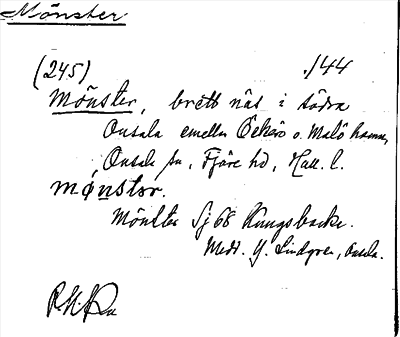 Mönster
(245) 1/44
Mönster, brett näs i södra
Onsala emellan Öckerö o. Malö hamn,
Onsala sn, Fjäre hd, Hall. l.
mønstər.
Mönster Sj 68 Kungsbacka.
Medd. Y. Lindgren, Onsala.